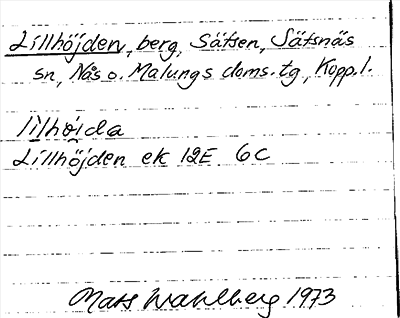 Lillhöjden, berg, Sätsen, Sätsnäs
sn, Nås o. Malungs doms. tg, Kopp.l.
lìlhö̀i̯da
Lillhöjden ek 12E 6C
Mats Wahlberg 1973